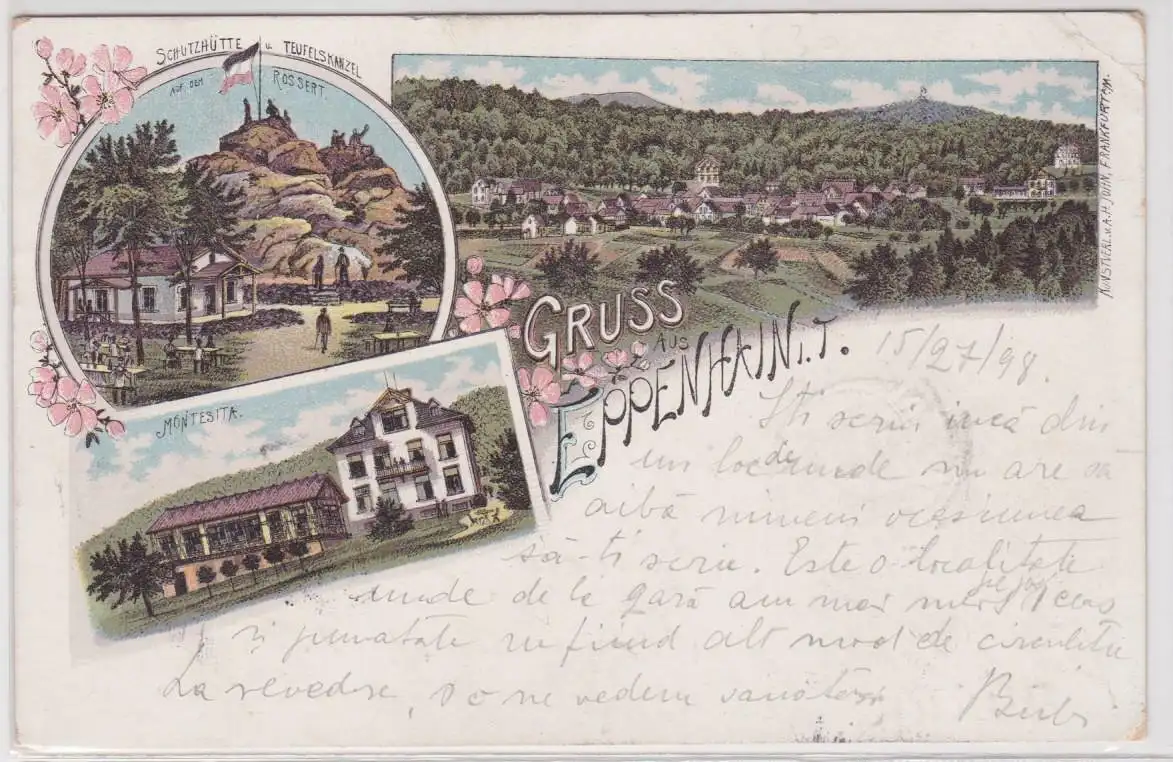 SCHUTZHÜTTE u. TEUFELSKANZEL
AUF DEM ROSSERT.
MONTESITA.
GRUSS
AUS
EPPENHAIN i. T.
KUNSTVERL. v. A. H. JUNN, FRANKFURT a/M.
15/27/98.
Iti scriu încă din
un loc de unde nu are să
aibă nimeni ocasiunea
să-ti scrie. Este o localitate
unde de la gară am mai mers pe jos 1 ceas
si jumatate nefiind alt mod de circulatie
La revedere, s'o ne vedem sanătosi